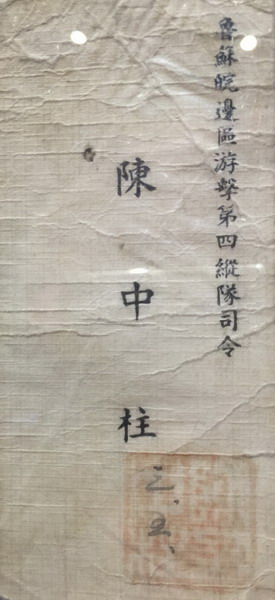 魯蘇皖邊區游擊第四縱隊司令
陳中柱
三、五、